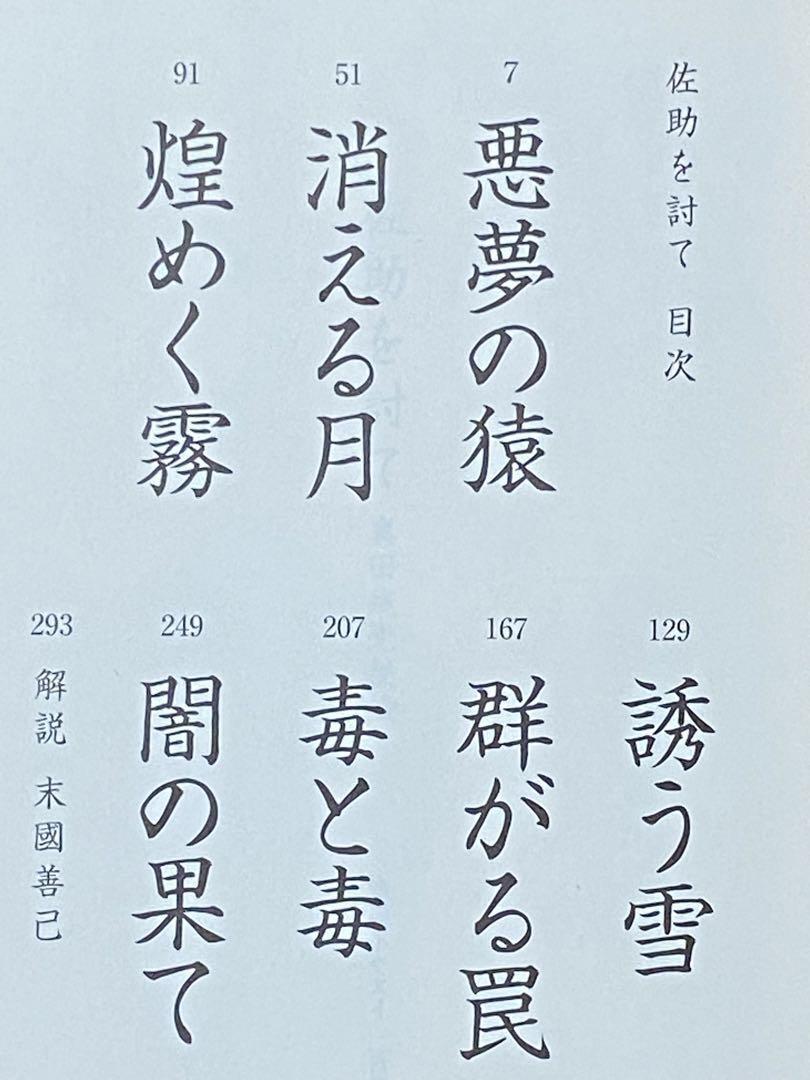 佐助を討て 目次
7
悪夢の猿
51
消える月
91
煌めく霧
129
誘う雪
167
群がる罠
207
毒と毒
249
闇の果て
293
解説 末國善己